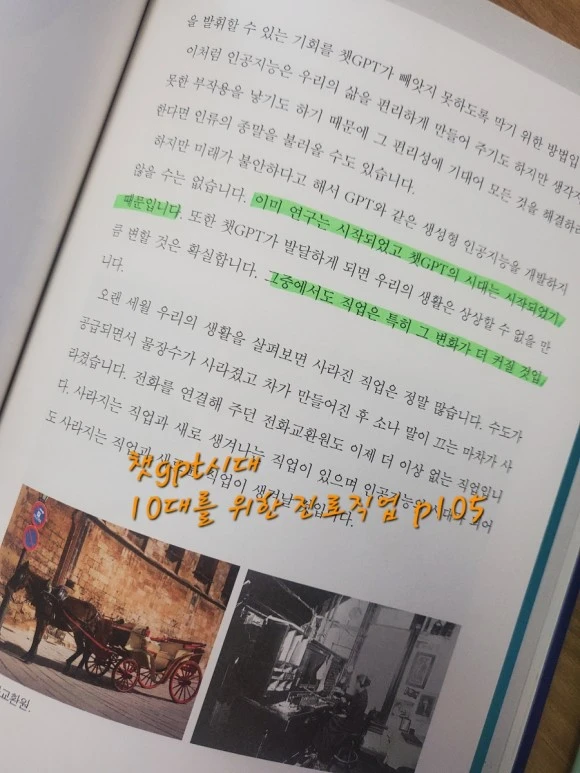 을 발휘할 수 있는 기회를 챗GPT가 빼앗지 못하도록 막기 위한 방법입
이처럼 인공지능은 우리의 삶을 편리하게 만들어 주기도 하지만 생각지
못한 부작용을 낳기도 하기 때문에 그 편리성에 기대어 모든 것을 해결하려
한다면 인류의 종말을 불러올 수도 있습니다.
하지만 미래가 불안하다고 해서 GPT와 같은 생성형 인공지능을 개발하지
않을 수는 없습니다. 이미 연구는 시작되었고 챗GPT의 시대는 시작되었기
때문입니다. 또한 챗GPT가 발달하게 되면 우리의 생활은 상상할 수 없을 만
큼 변할 것은 확실합니다. 그중에서도 직업은 특히 그 변화가 더 커질 것입
니다.
오랜 세월 우리의 생활을 살펴보면 사라진 직업은 정말 많습니다. 수도가
공급되면서 물장수가 사라졌고 차가 만들어진 후 소나 말이 끄는 마차가 사
라졌습니다. 전화를 연결해 주던 전화교환원도 이제 더 이상 없는 직업입니
다. 사라지는 직업과 새로 생겨나는 직업이 있으며 인공지능의 시대가 되어
도 사라지는 직업과 직업이 생겨날 것입니다.
챗gpt시대
10대를 위한 진로직업 p105
교환원.